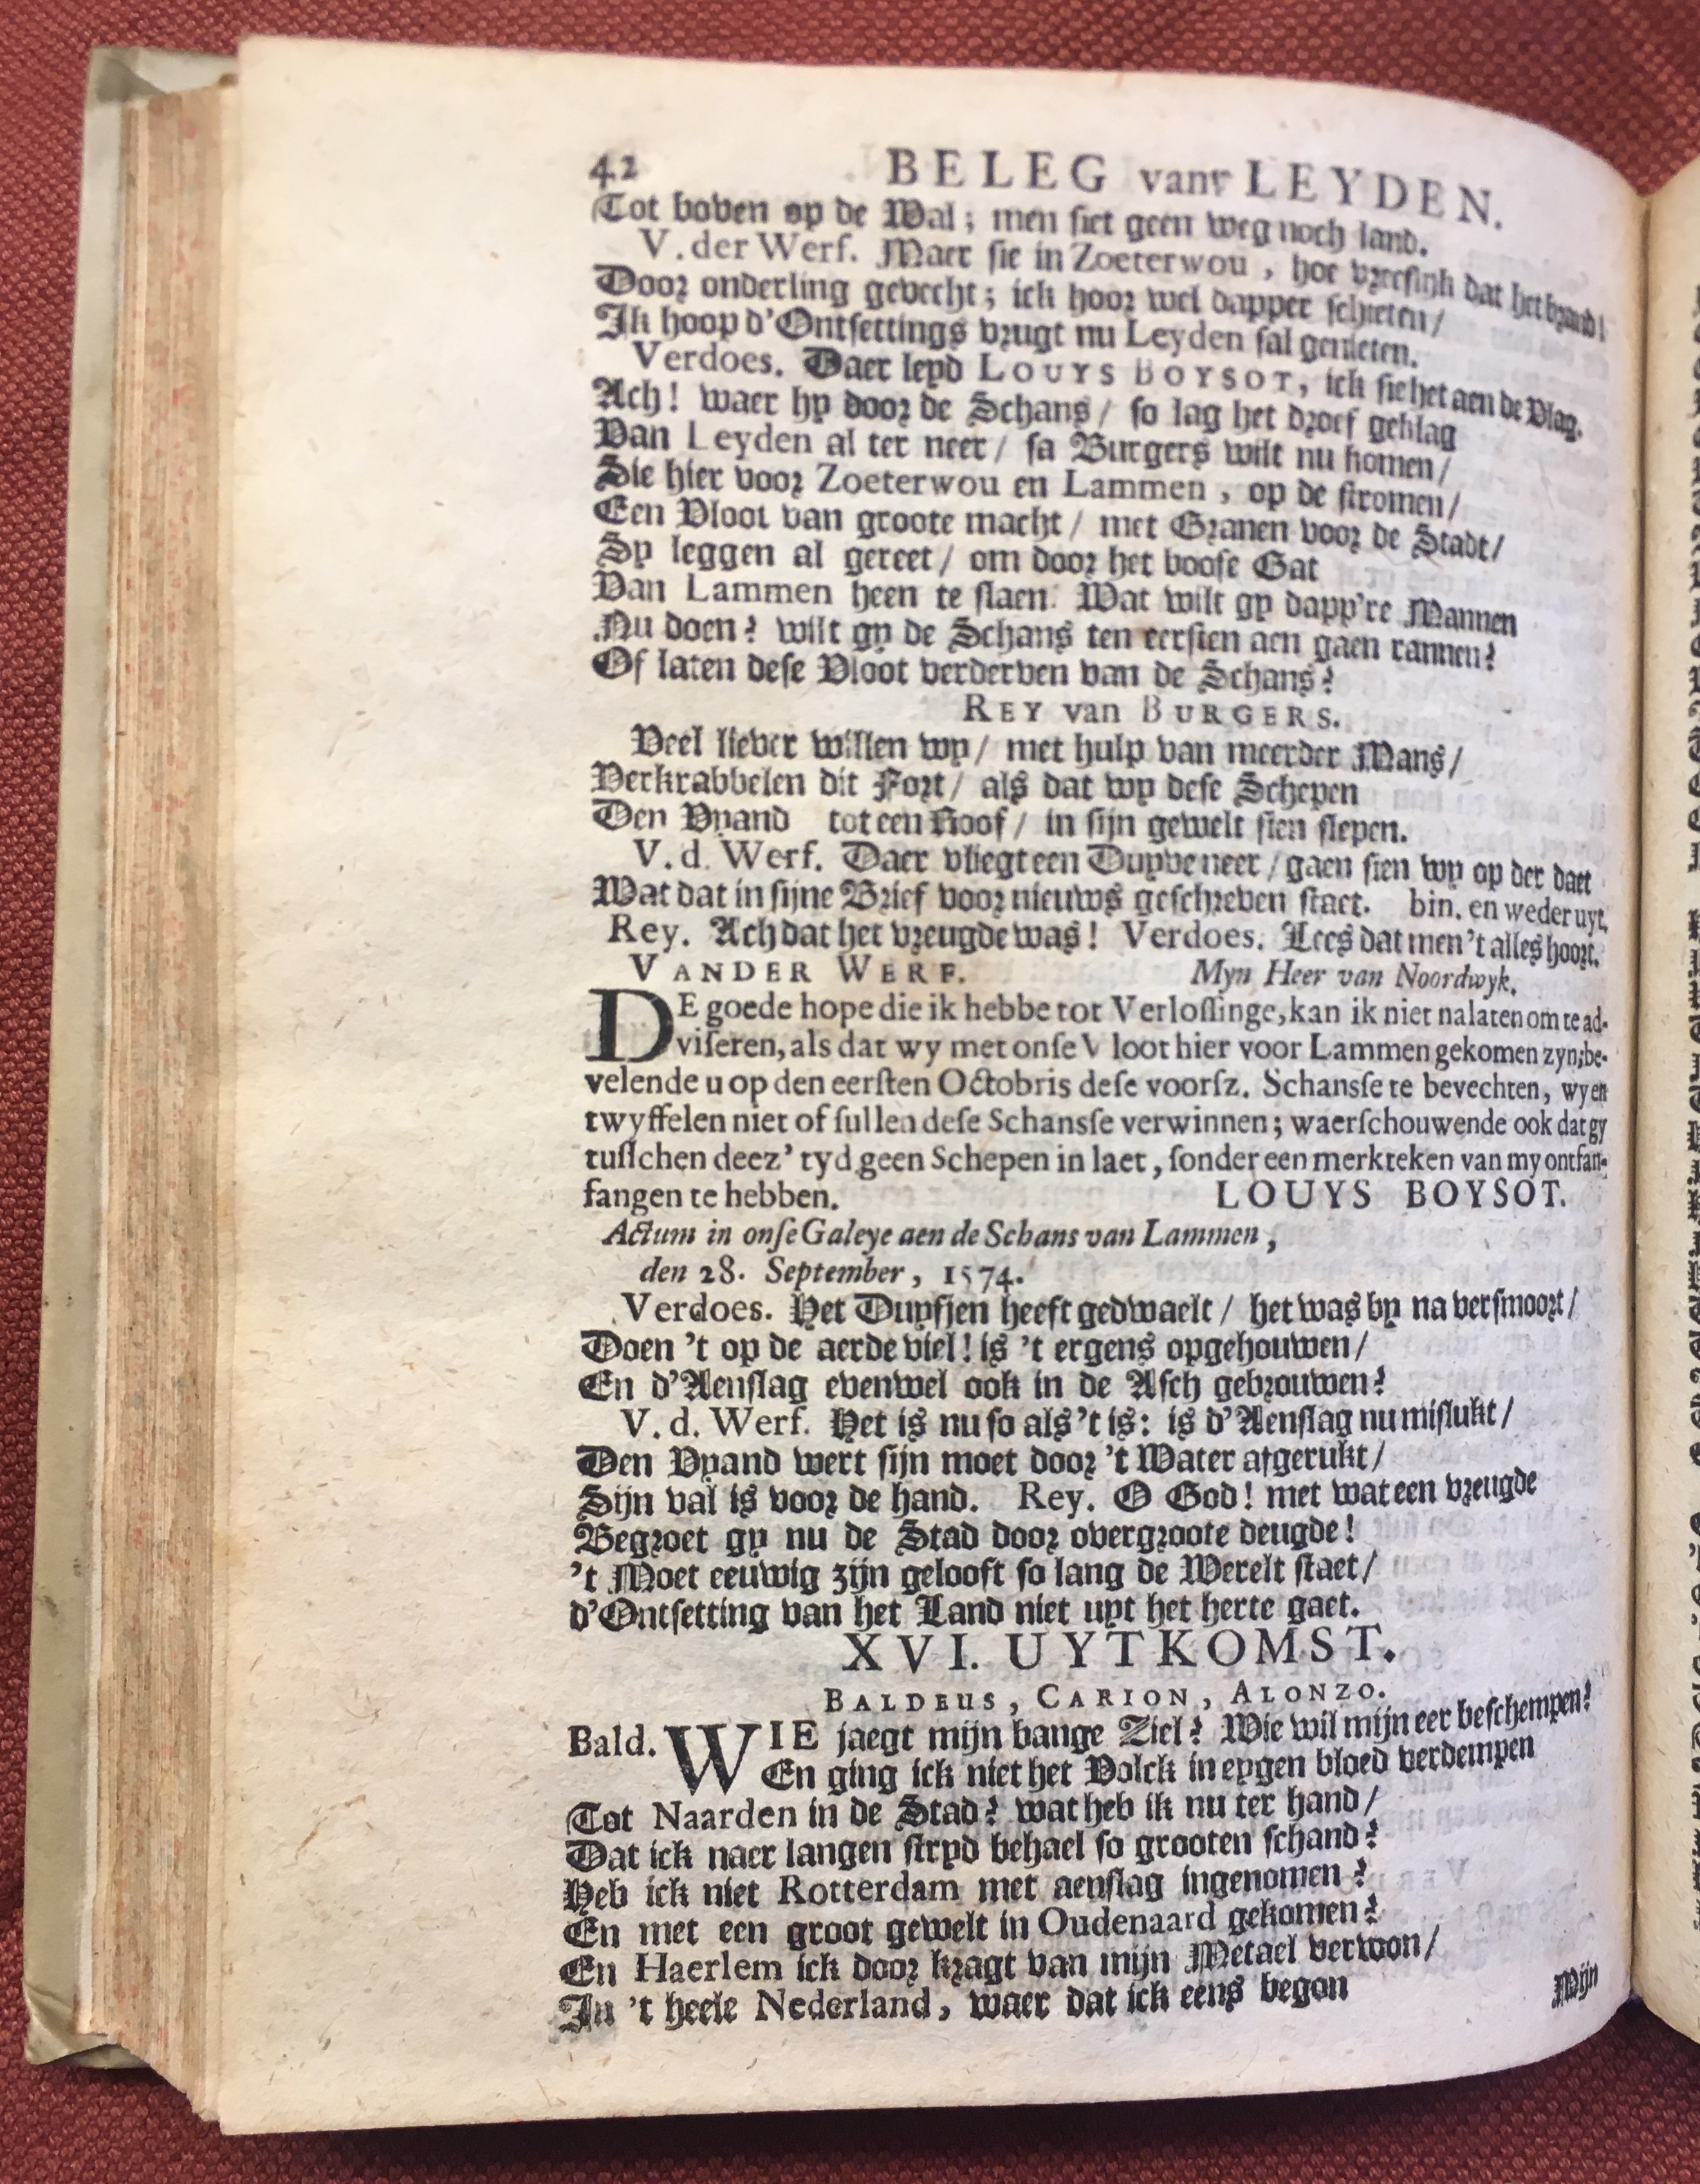 42 BELEG van LEYDEN.
Tot boven op de Wal; men siet geen weg noch land.
V. der Werf. Maer sie in Zoeterwou, hoe vreeslijk dat het brand!
Door onderling gevecht; ick hoor wel dapper schieten/
Ik hoop d'Ontsettings vrugt nu Leyden sal genieten.
Verdoes. Daer leyd LOUYS BOYSOT, ick sie het aen de Vlag.
Ach! waer hy door de Schans/ so lag het droef geklag
Van Leyden al ter neer/ sa Burgers wilt nu komen/
Sie hier voor Zoeterwou en Lammen, op de stromen/
Een Vloot van groote macht/ met Granen voor de Stadt/
Sy leggen al gereet/ om door het boose Gat
Van Lammen heen te slaen. Wat wilt gy dapp're Mannen
Nu doen? wilt gy de Schans ten eersten aen gaen rannen?
Of laten dese Vloot verderven van de Schans?
REY van BURGERS.
Veel liever willen wy/ met hulp van meerder Mans/
Verkrabbelen dit Fort/ als dat wy dese Schepen
Den Vyand tot een Roof/ in sijn gewelt sien slepen.
V. d. Werf. Daer vliegt een Duyve neer/ gaen sien wy op der daet
Wat dat in sijne Brief voor nieuws geschreven staet. bin. en weder uyt.
Rey. Ach dat het vreugde was! Verdoes. Lees dat men 't alles hoort.
VANDER WERF. Myn Heer van Noordwyk.
DE goede hope die ik hebbe tot Verlossinge, kan ik niet nalaten om te ad-
viseren, als dat wy met onse Vloot hier voor Lammen gekomen zyn; be-
velende u op den eersten Octobris dese voorsz. Schansse te bevechten, wy en
twyffelen niet of sullen dese Schansse verwinnen; waerschouwende ook dat gy
tusschen deez' tyd geen Schepen in laet, sonder een merkteken van my ontfan-
fangen te hebben. LOUYS BOYSOT.
Actum in onse Galeye aen de Schans van Lammen,
den 28. September, 1574.
Verdoes. Het Duyfjen heeft gedwaelt/ het was by na versmoort/
Doen 't op de aerde viel! is 't ergens opgehouwen/
En d'Aenslag evenwel ook in de Asch gebrouwen?
V. d. Werf. Het is nu so als 't is: is d'Aenslag nu mislukt/
Den Vyand wert sijn moet door 't Water afgerukt/
Sijn val is voor de hand. Rey. O God! met wat een vreugde
Begroet gy nu de Stad door overgroote deugde!
't Moet eeuwig zijn gelooft so lang de Werelt staet/
d'Ontsetting van het Land niet uyt het herte gaet.
XVI. UYTKOMST.
BALDEUS, CARION, ALONZO.
Bald. WIE jaegt mijn bange Ziel? Wie wil mijn eer beschempen?
En ging ick niet het Volck in eygen bloed verdempen
Tot Naarden in de Stad? wat heb ik nu ter hand/
Dat ick naer langen stryd behael so grooten schand?
Heb ick niet Rotterdam met aenslag ingenomen?
En met een groot gewelt in Oudenaard gekomen?
En Haerlem ick door kragt van mijn Metael verwon/
In 't heele Nederland, waer dat ick eens begon
Mijn